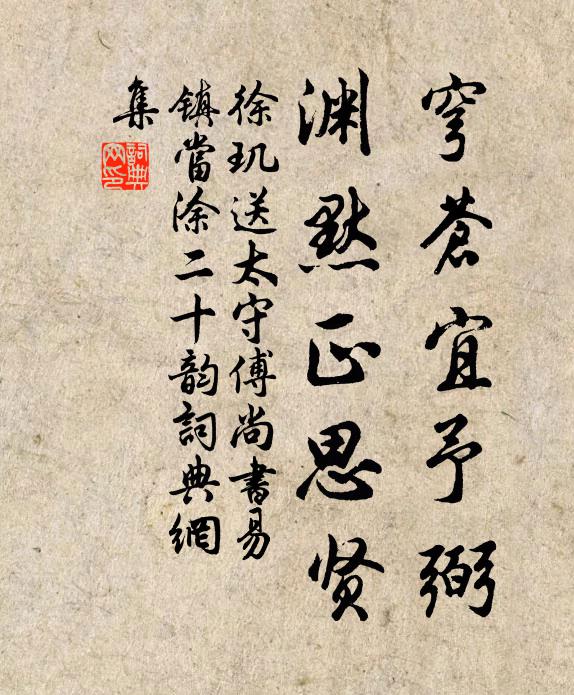 穹苍宜予弼
渊默正思贤
徐玑送太守傅尚書易
镇當涂二十韵詞典網
集
詞典网印